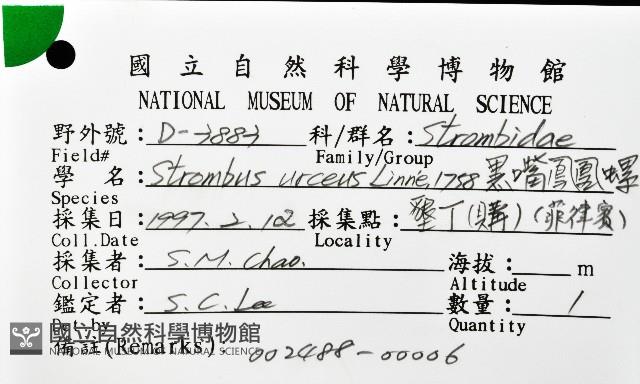 國立自然科學博物館
NATIONAL MUSEUM OF NATURAL SCIENCE
野外號：D-3883 科/群名：Strombidae
Field# Family/Group
學 名：Strombus urceus Linné, 1758 黑嘴鳳凰螺
Species
採集日：1997. 2. 12 採集點：墾丁(購)(菲律賓)
Coll.Date Locality
採集者：S.M. Chao. 海拔： m
Collector Altitude
鑑定者：S.C. Lee 數量：1
Det.by Quantity
國立自然科學博物館
NATIONAL MUSEUM OF NATURAL SCIENCE
備註(Remarks) 002488-00006